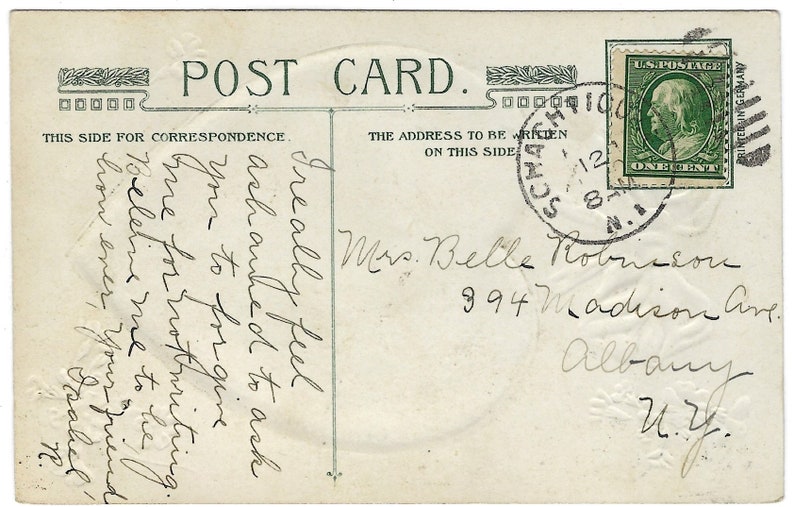 POST CARD.
THIS SIDE FOR CORRESPONDENCE.
THE ADDRESS TO BE WRITTEN
ON THIS SIDE
U.S. POSTAGE
ONE CENT
PRINTED IN GERMANY
SCHAGHTICO
12
8 AM
N.Y.
I really feel
ashamed to ask
you to forgive
me for not writing.
Believe me to be
however, your friend
Isabel
R.
Mrs. Belle Robinson
394 Madison Ave.
Albany
N.Y.